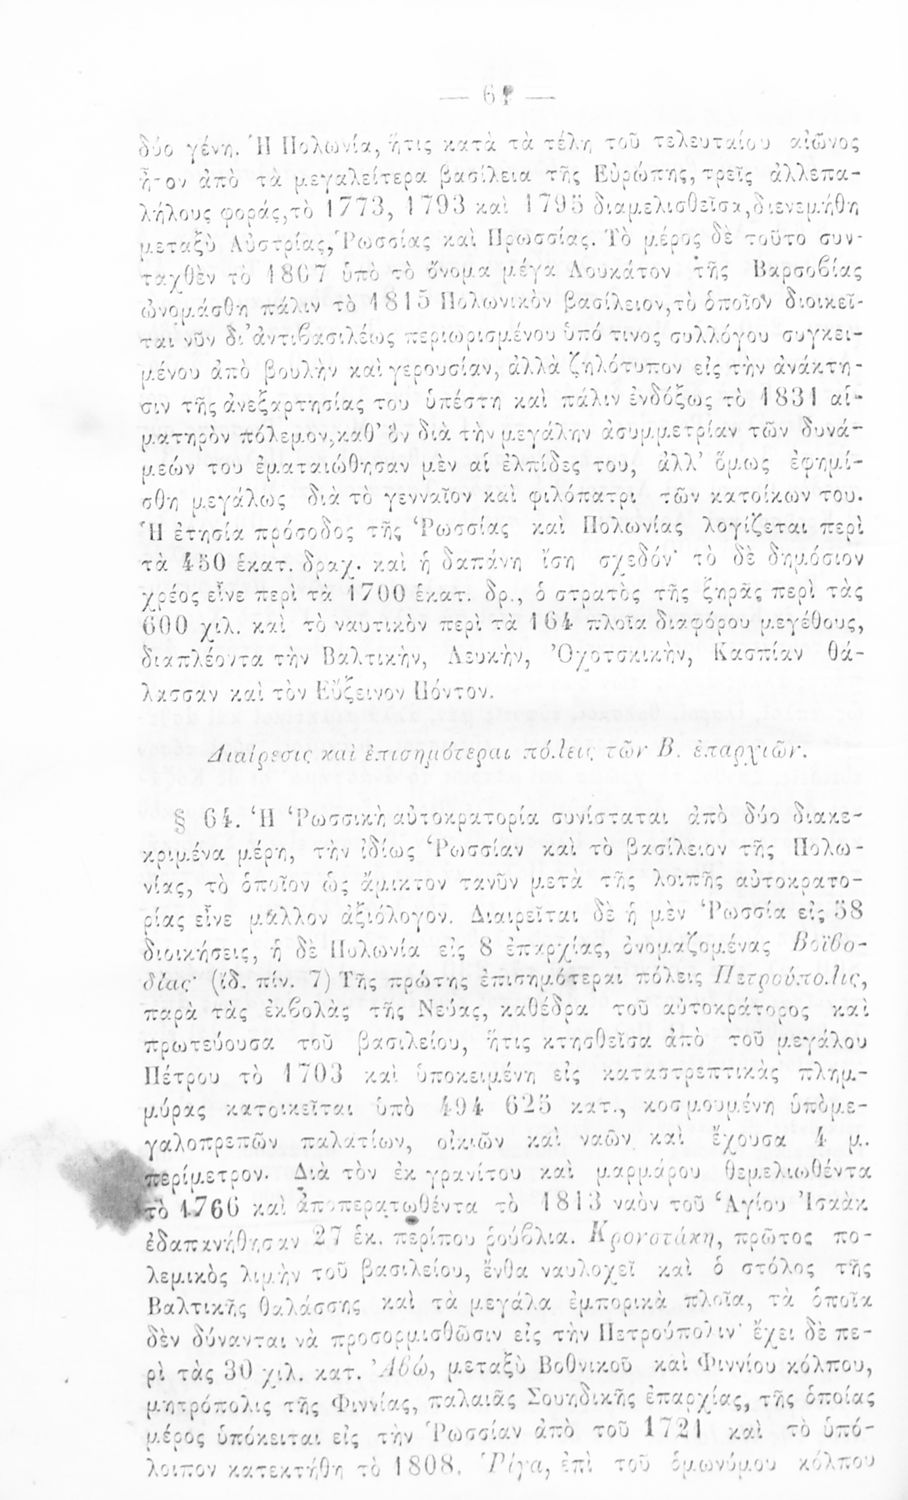 — 61 —
δύο γένη. Ἡ Πολωνία, ἥτις κατὰ τὰ τέλη τοῦ τελευταίου αἰῶνος
ἦτον ἀπὸ τὰ μεγαλείτερα βασίλεια τῆς Εὐρώπης, τρεῖς ἀλλεπα-
λήλους φοράς, τὸ 1773, 1793 καὶ 1795 διαμελισθεῖσα, διενεμήθη
μεταξὺ Αὐστρίας, Ῥωσσίας καὶ Πρωσσίας. Τὸ μέρος δὲ τοῦτο συν-
ταχθὲν τὸ 1807 ὑπὸ τὸ ὄνομα μέγα Δουκάτον τῆς Βαρσοβίας
ὠνομάσθη πάλιν τὸ 1815 Πολωνικὸν βασίλειον, τὸ ὁποῖον διοικεῖ-
ται νῦν δι᾿ ἀντιβασιλέως περιωρισμένου ὑπό τινος συλλόγου συγκει-
μένου ἀπὸ βουλὴν καὶ γερουσίαν, ἀλλὰ ζηλότυπον εἰς τὴν ἀνάκτη-
σιν τῆς ἀνεξαρτησίας του ὑπέστη καὶ πάλιν ἐνδόξως τὸ 1831 αἱ-
ματηρὸν πόλεμον, καθ᾿ ὃν διὰ τὴν μεγάλην ἀσυμμετρίαν τῶν δυνά-
μεών του ἐματαιώθησαν μὲν αἱ ἐλπίδες του, ἀλλ᾿ ὅμως ἐφημί-
σθη μεγάλως διὰ τὸ γενναῖον καὶ φιλόπατρι τῶν κατοίκων του.
Ἡ ἐτησία πρόσοδος τῆς Ῥωσσίας καὶ Πολωνίας λογίζεται περὶ
τὰ 450 ἑκατ. δραχ. καὶ ἡ δαπάνη ἴση σχεδόν· τὸ δὲ δημόσιον
χρέος εἶνε περὶ τὰ 1700 ἑκατ. δρ., ὁ στρατὸς τῆς ξηρᾶς περὶ τὰς
600 χιλ. καὶ τὸ ναυτικὸν περὶ τὰ 164 πλοῖα διαφόρου μεγέθους,
διαπλέοντα τὴν Βαλτικὴν, Λευκὴν, Ὀχοτσκικὴν, Κασπίαν θά-
λασσαν καὶ τὸν Εὔξεινον Πόντον.
Διαίρεσις καὶ ἐπισημότεραι πόλεις τῶν Β. ἐπαρχιῶν.
§ 64. Ἡ Ῥωσσικὴ αὐτοκρατορία συνίσταται ἀπὸ δύο διακε-
κριμένα μέρη, τὴν ἰδίως Ῥωσσίαν καὶ τὸ βασίλειον τῆς Πολω-
νίας, τὸ ὁποῖον ὡς ἄμικτον τανῦν μετὰ τῆς λοιπῆς αὐτοκρατο-
ρίας εἶνε μᾶλλον ἀξιόλογον. Διαιρεῖται δὲ ἡ μὲν Ῥωσσία εἰς 58
διοικήσεις, ἡ δὲ Πολωνία εἰς 8 ἐπαρχίας, ὀνομαζομένας Βοϊβο-
δίας· (ἰδ. πίν. 7) Τῆς πρώτης ἐπισημότεραι πόλεις Πετρούπολις,
παρὰ τὰς ἐκβολὰς τῆς Νεύας, καθέδρα τοῦ αὐτοκράτορος καὶ
πρωτεύουσα τοῦ βασιλείου, ἥτις κτησθεῖσα ἀπὸ τοῦ μεγάλου
Πέτρου τὸ 1703 καὶ ὑποκειμένη εἰς καταστρεπτικὰς πλημ-
μύρας κατοικεῖται ὑπὸ 494 625 κατ., κοσμουμένη ὑπὸ με-
γαλοπρεπῶν παλατίων, οἰκιῶν καὶ ναῶν καὶ ἔχουσα 4 μ.
περίμετρον. Διὰ τὸν ἐκ γρανίτου καὶ μαρμάρου θεμελιωθέντα
τὸ 1766 καὶ ἀποπερατωθέντα τὸ 1813 ναὸν τοῦ Ἁγίου Ἰσαὰκ
ἐδαπανήθησαν 27 ἑκ. περίπου ῥούβλια. Κρονστάκη, πρῶτος πο-
λεμικὸς λιμὴν τοῦ βασιλείου, ἔνθα ναυλοχεῖ καὶ ὁ στόλος τῆς
Βαλτικῆς θαλάσσης καὶ τὰ μεγάλα ἐμπορικὰ πλοῖα, τὰ ὁποῖα
δὲν δύνανται νὰ προσορμισθῶσιν εἰς τὴν Πετρούπολιν· ἔχει δὲ πε-
ρὶ τὰς 30 χιλ. κατ. Ἀβώ, μεταξὺ Βοθνικοῦ καὶ Φιννίου κόλπου,
μητρόπολις τῆς Φιννίας, παλαιᾶς Σουηδικῆς ἐπαρχίας, τῆς ὁποίας
μέρος ὑπόκειται εἰς τὴν Ῥωσσίαν ἀπὸ τοῦ 1721 καὶ τὸ ὑπό-
λοιπον κατεκτήθη τὸ 1808. Ῥίγα, ἐπὶ τοῦ ὁμωνύμου κόλπου